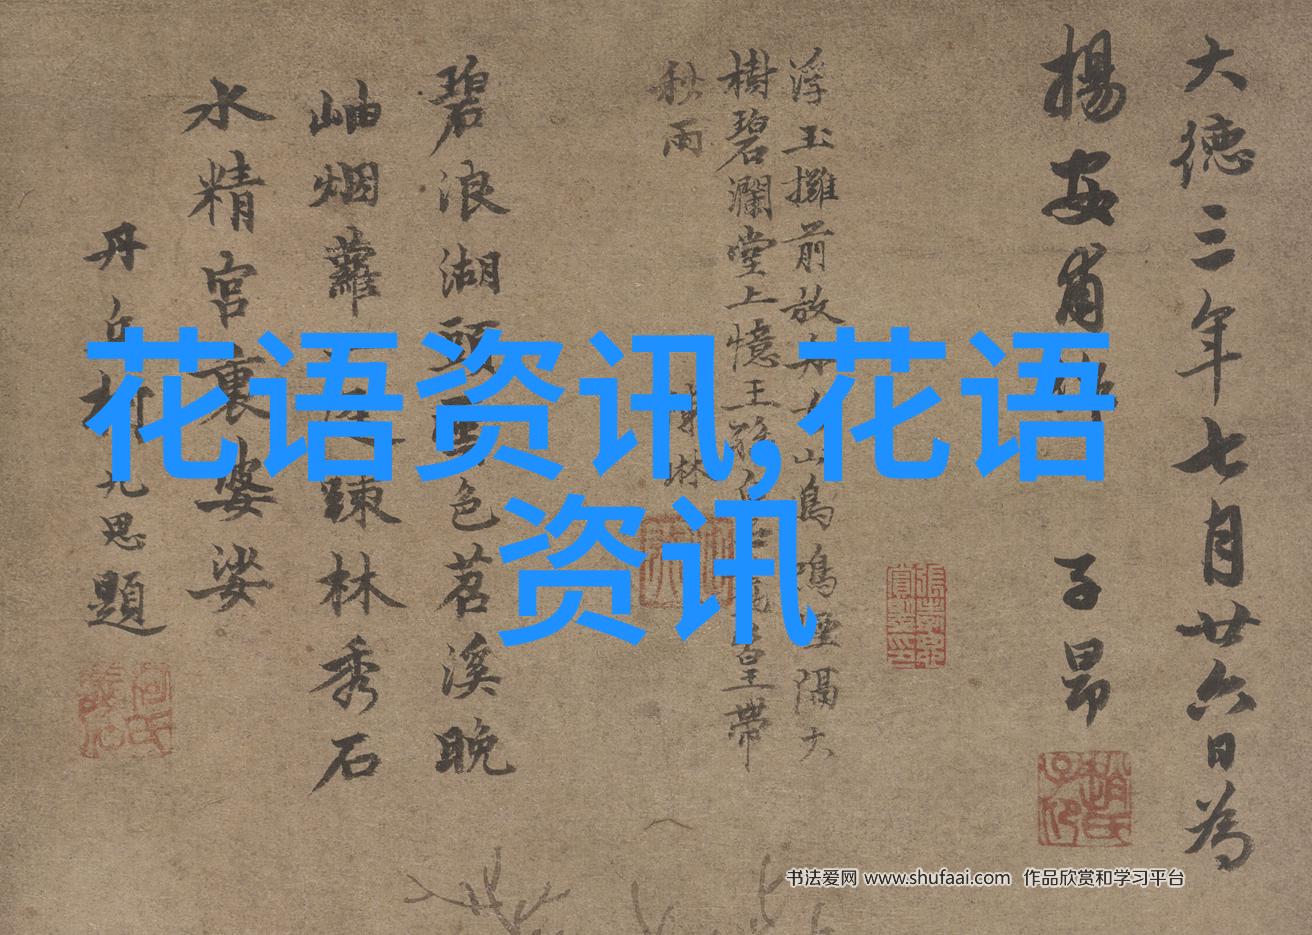 大德三年七月廿六日為
揚安甫作
子昂
浮玉攤前放
山鳥鳴
隔大
樹碧瀾堂上憶王
皇帶
秋雨
碧浪湖頭
色苕溪晚
岫烟蘿
疎林秀石
水精宮裏婆娑
丹丘柯九思題
花语资讯,花语
资讯
书法爱网 www.shufaai.com 作品欣赏和学习平台